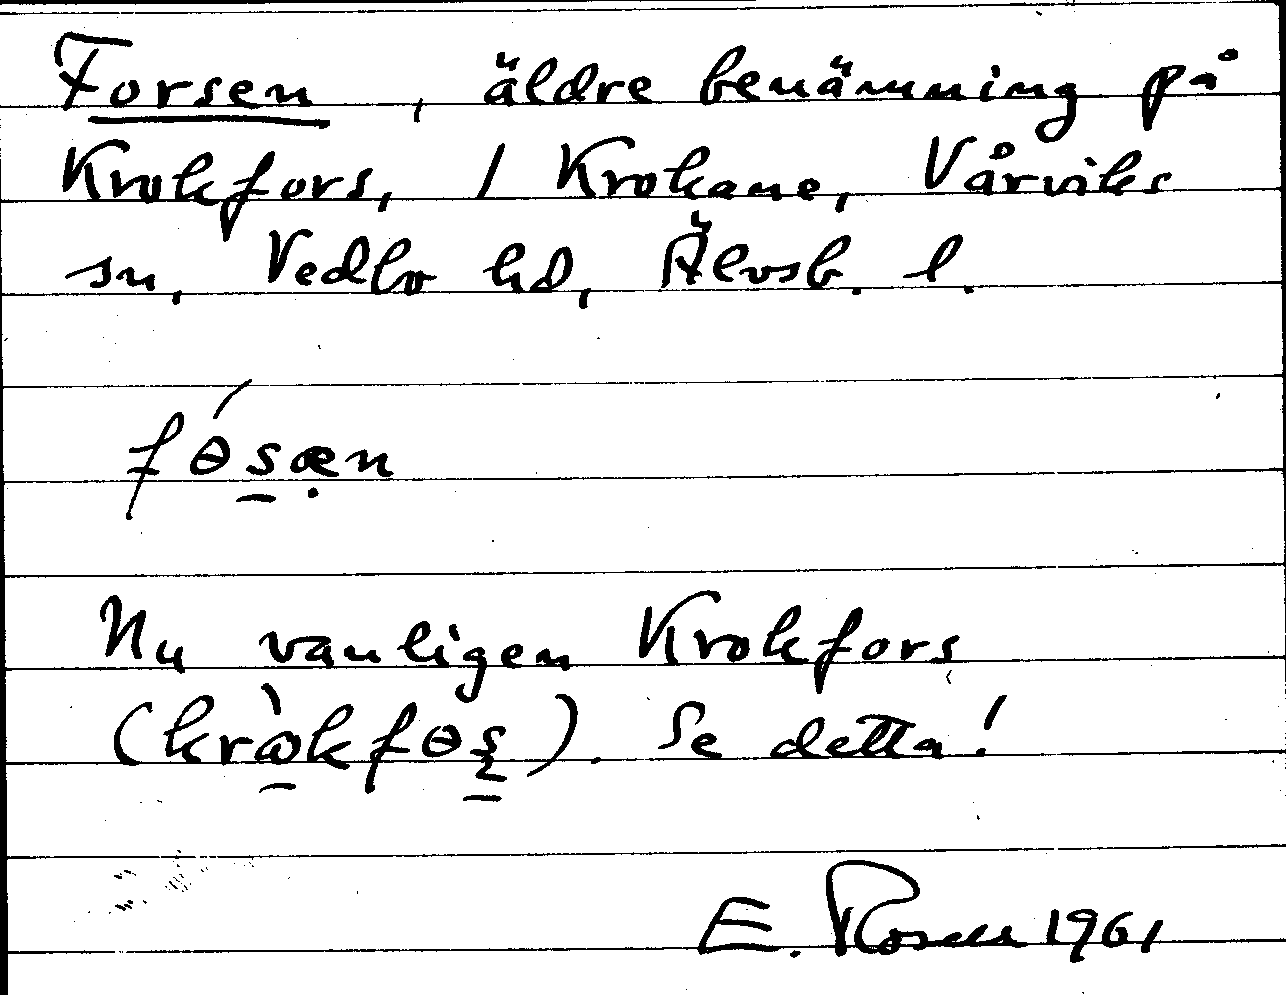 Forsen, äldre benämning på
Krokfors, / Krokane, Vårviks
sn, Vedbo hd, Älvsb. l.
fɵ́sæ̣n
Nu vanligen Krokfors
(krὼkfɵs̱). Se detta!
E. Rosell 1961